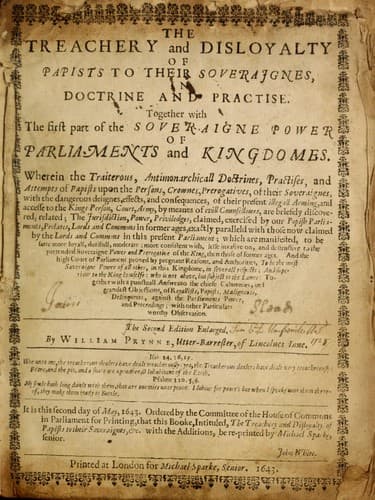 THE
TREACHERY and DISLOYALTY
OF
PAPISTS TO THEIR SOVERAIGNES,
IN
DOCTRINE AND PRACTISE.
Together with
The first part of the SOVERAIGNE POWER
OF
PARLIAMENTS and KINGDOMES.
Wherein the Traiterous, Antimonarchicall Doctrines, Practises, and
Attempts of Papists upon the Persons, Crownes, Prerogatives, of their Soveraignes,
with the dangerous designes, effects, and consequences, of their present illegall Arming, and
accesse to the Kings Person, Court, Army, by meanes of evill Counsellours, are briefely discove-
red, related; The Jurisdiction, Power, Priviledges, claimed, exercised by our Popish Parlia-
ments, Prelats, Lords and Commons in former ages, exactly paralleld with those now claimed
by the Lords and Commons in this present Parliament; which are manifested, to be
farre more loyall, dutifull, moderate; more consistent with, lesse invasive on, and destructive to the
pretended Soveraigne Power and Prerogative of the King, then those of former ages. And the
high Court of Parliament proved by pregnant Reasons, and Authorities, To be the most
Soveraigne Power of all other, in this Kingdome, in severall respects; And superi-
our to the King himselfe: who is not above, but subject to the Lawes: To-
gether with a punctuall Answer to the chiefe Calumnies, and
grandest Objections, of Royallists, Papists, Malignants,
Delinquents, against the Parliaments Power,
and Proceedings; with other Particulars
worthy Observation.
The Second Edition Enlarged.
By WILLIAM PRYNNE, Utter-Barrester, of Lincolnes Inne.
Isa. 24. 16, 17.
Psalme 120. 5, 6.
My soule hath long dwelt with them, that are enemies unto peace. I labour for peace; but when I speake unto them there-
of, they make them ready to Battle.
It is this second day of May, 1643. Ordered by the Committee of the House of Commons
in Parliament for Printing, that this Booke, Intituled, The Treachery and Disloyalty of
Papists to their Soveraignes, &c. with the Additions, be re-printed by Michael Sparke,
senior.
John White.
Printed at London for Michael Sparke, Senior. 1643.